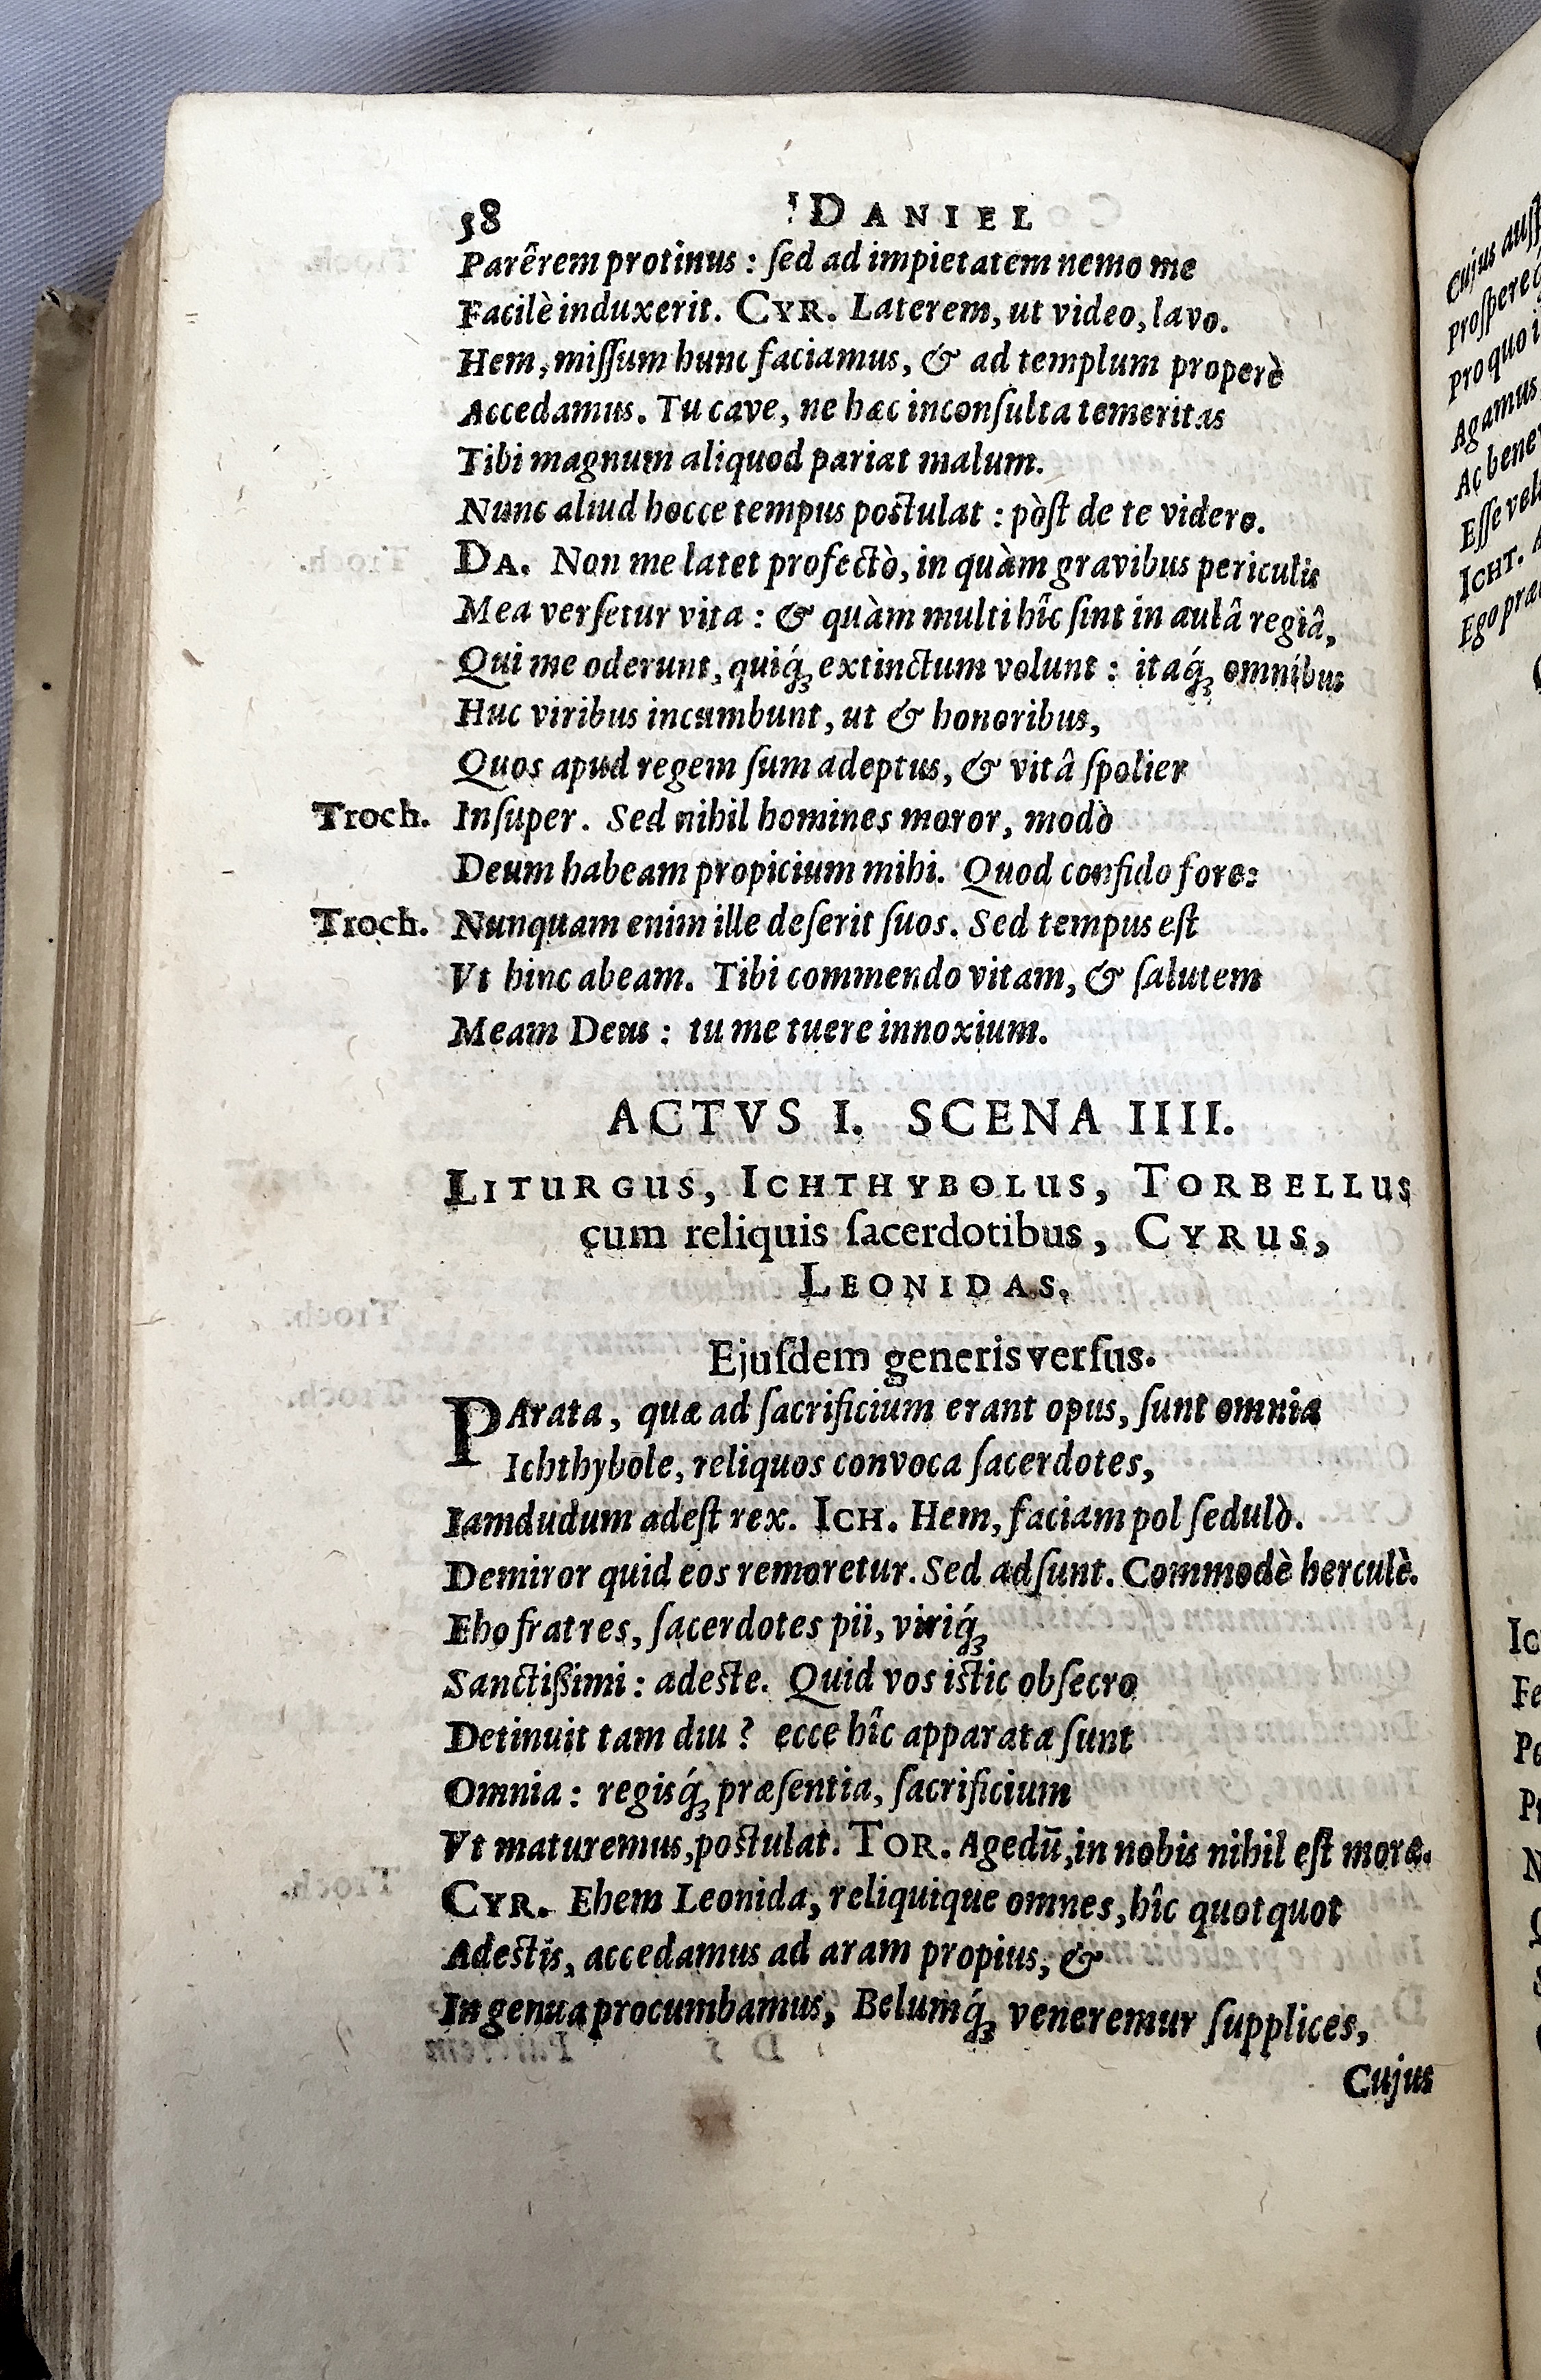 58 DANIEL
Parêrem protinus : ſed ad impietatem nemo me
Facilè induxerit. CYR. Laterem, ut video, lavo.
Hem, miſſum hunc faciamus, & ad templum properè
Accedamus. Tu cave, ne hæc inconſulta temeritas
Tibi magnum aliquod pariat malum.
Nunc aliud hocce tempus poſtulat : pòſt de te videro.
DA. Non me latet profectò, in quàm gravibus periculis
Mea verſetur vita : & quàm multi hîc ſint in aulâ regiâ,
Qui me oderunt, quiq́ꝫ extinctum volunt : itaq́ꝫ omnibus
Huc viribus incumbunt, ut & honoribus,
Quos apud regem ſum adeptus, & vitâ ſpolier
Troch. Inſuper. Sed nihil homines moror, modò
Deum habeam propicium mihi. Quod confido fore:
Troch. Nunquam enim ille deſerit ſuos. Sed tempus eſt
Vt hinc abeam. Tibi commendo vitam, & ſalutem
Meam Deus : tu me tuere innoxium.
ACTVS I. SCENA IIII.
LITURGUS, ICHTHYBOLUS, TORBELLUS
cum reliquis ſacerdotibus, CYRUS,
LEONIDAS.
Ejuſdem generis verſus.
PArata, quæ ad ſacrificium erant opus, ſunt omnia
Ichthybole, reliquos convoca ſacerdotes,
Iamdudum adeſt rex. ICH. Hem, faciam pol ſedulò.
Demiror quid eos remoretur. Sed adſunt. Commodè herculè.
Eho fratres, ſacerdotes pii, viriq́ꝫ
Sanctißimi : adeſte. Quid vos iſtic obſecro
Detinuit tam diu ? ecce hîc apparata ſunt
Omnia : regisq́ꝫ præſentia, ſacrificium
Vt maturemus, poſtulat. TOR. Agedū, in nobis nihil eſt moræ.
CYR. Ehem Leonida, reliquique omnes, hîc quotquot
Adeſtis, accedamus ad aram propius, &
In genua procumbamus, Belumq́ꝫ veneremur ſupplices,
Cujus
Cujus
Proſpere
Pro quo
Agamus
Ac
Eſſe
ICHT.
Ego